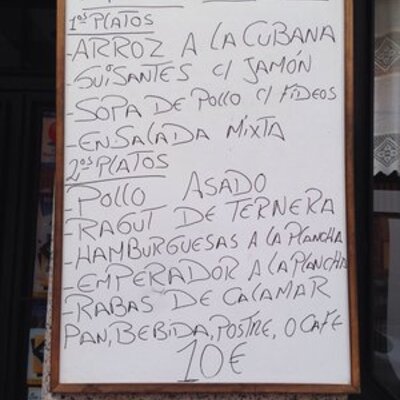 1os PLATOS
-ARROZ A LA CUBANA
-GUISANTES C/ JAMÓN
-SOPA DE POLLO C/ FIDEOS
-ENSALADA MIXTA
2os PLATOS
-POLLO ASADO
-RAGUT DE TERNERA
-HAMBURGUESAS A LA PLANCHA
-EMPERADOR A LA PLANCHA
-RABAS DE CALAMAR
PAN, BEBIDA, POSTRE, O CAFE
10€